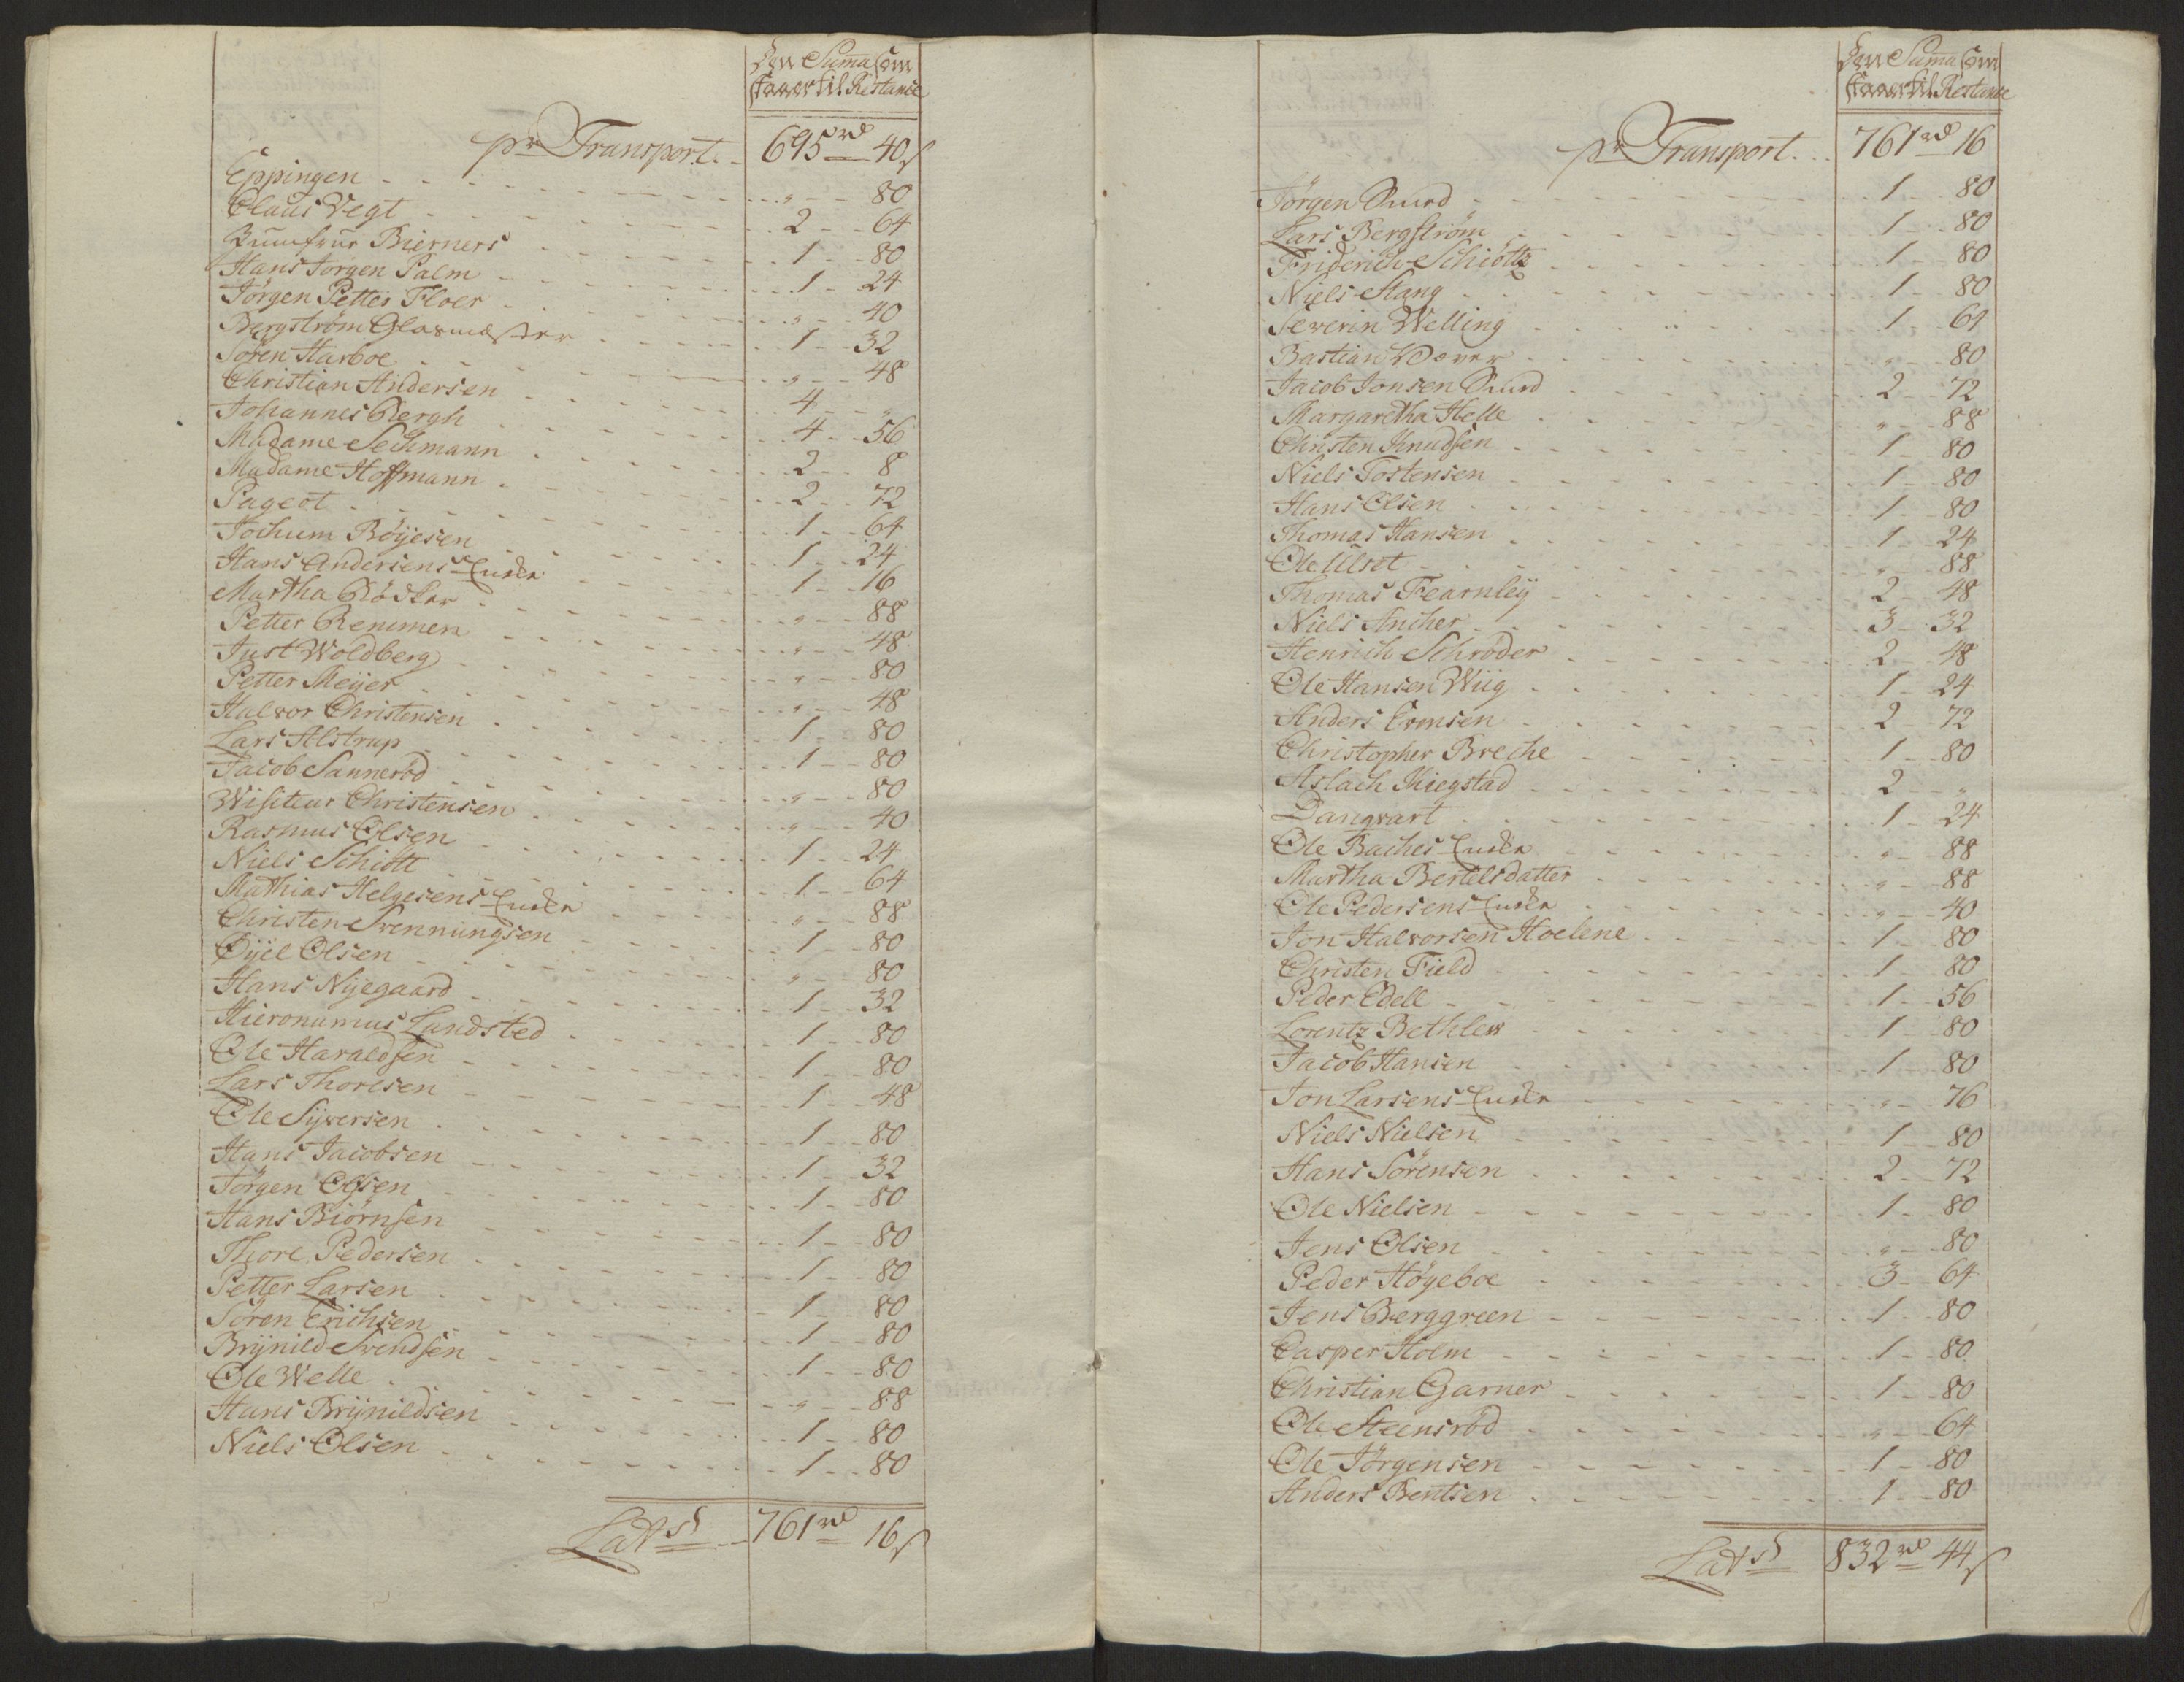 Den Suma som
staaer til Restance
pr Transport. 695rd 40s
Eppingen " 80
Claus Vegt 2 64
Jumfrue Bierners 1 80
Hans Jørgen Palm 1 24
Jörgen Petter Floer " 40
Bergström Glarmester 1 32
Sören Harboe " 48
Christian Andersen 4 "
Johannes Bergh 4 56
Madame Sechmann 2 8
Madame Hoffmann 2 72
Pageot 1 64
Jochum Böyesen 1 24
Hans Andersens Encke 1 16
Martha Bödker " 88
Petter Remmen " 48
Just Woldberg " 80
Petter Meyer " 48
Halvor Christensen 1 80
Lars Alstrup 1 80
Jacob Sanneröd " 80
Wisiteur Christensen " 40
Rasmus Olsen 1 24
Niels Schiött 1 64
Mathias Helgesens Encke " 88
Christen Svenningsen 1 80
Eyel Olsen " 80
Hans Nyegaard 1 32
Hieronumus Landsted 1 80
Ole Haraldsen 1 80
Lars Thoresen 1 48
Ole Syversen 1 80
Hans Jacobsen 1 32
Jörgen Olsen 1 80
Hans Biörnsen 1 80
Thore Pedersen 1 80
Petter Larsen 1 80
Sören Erichsen 1 80
Brynild Svendsen 1 80
Ole Welle " 88
Hans Brynildsen 1 80
Niels Olsen 1 80
Lat 761rd 16s
Den Suma som
staaer til Restance
pr Transport. 761rd 16
Jörgen Smed 1 80
Lars Bergström 1 80
Friderich Schiöttz 1 80
Niels Stang 1 80
Severin Welling 1 64
Bastian " 80
Jacob Jonsen Smed 2 72
Margaretha Helle " 88
Christen Knudsen 1 80
Niels Tostensen 1 80
Hans Olsen 1 80
Thomas Hansen 1 24
Ole Ulset " 88
Thomas Fearnley 2 48
Niels Ancher 3 32
Henrich Schröder 2 48
Ole Hansen Wiig 1 24
Anders Evensen 2 72
Christopher Breche 1 80
Aslach Kiegstad 2 "
Danqvart 1 24
Ole Baches Encke " 88
Martha Bertelsdatter " 88
Ole Pedersens Encke " 40
Jon Halvorsen Hoelene 1 80
Christen Field 1 80
Peder Edell 1 56
Lorentz Bethlew 1 80
Jacob Hansen 1 80
Jon Larsens Encke " 76
Niels Nielsen 1 80
Hans Sörensen 2 72
Ole Nielsen 1 80
Jens Olsen " 80
Peder Högeboe 3 64
Jens Berggreen 1 80
Casper Holm 1 80
Christian Garner 1 80
Ole Steensröd " 64
Ole Jörgensen 1 80
Anders Bentsen 1 80
Lat 832rd 44s